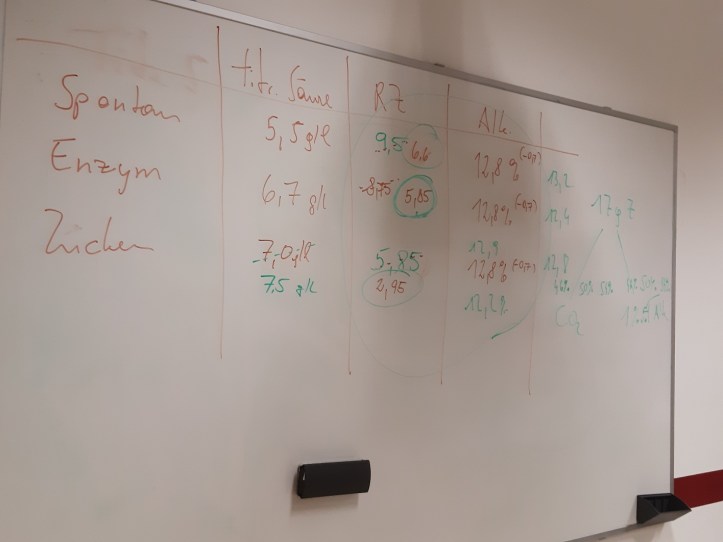 titr. Säure RZ Alk
Spontan 5,5 g/l 9,5 6,6 12,8 % (-0,7) 13,2
Enzym 6,7 g/l 8,75 5,85 12,8 % (-0,7) 12,4
17 g Z
Zucker 7,0 g/l 5,85 12,9
12,8 % (-0,7) 12,8
7,5 g/l 2,95 12,2 %
CO₂